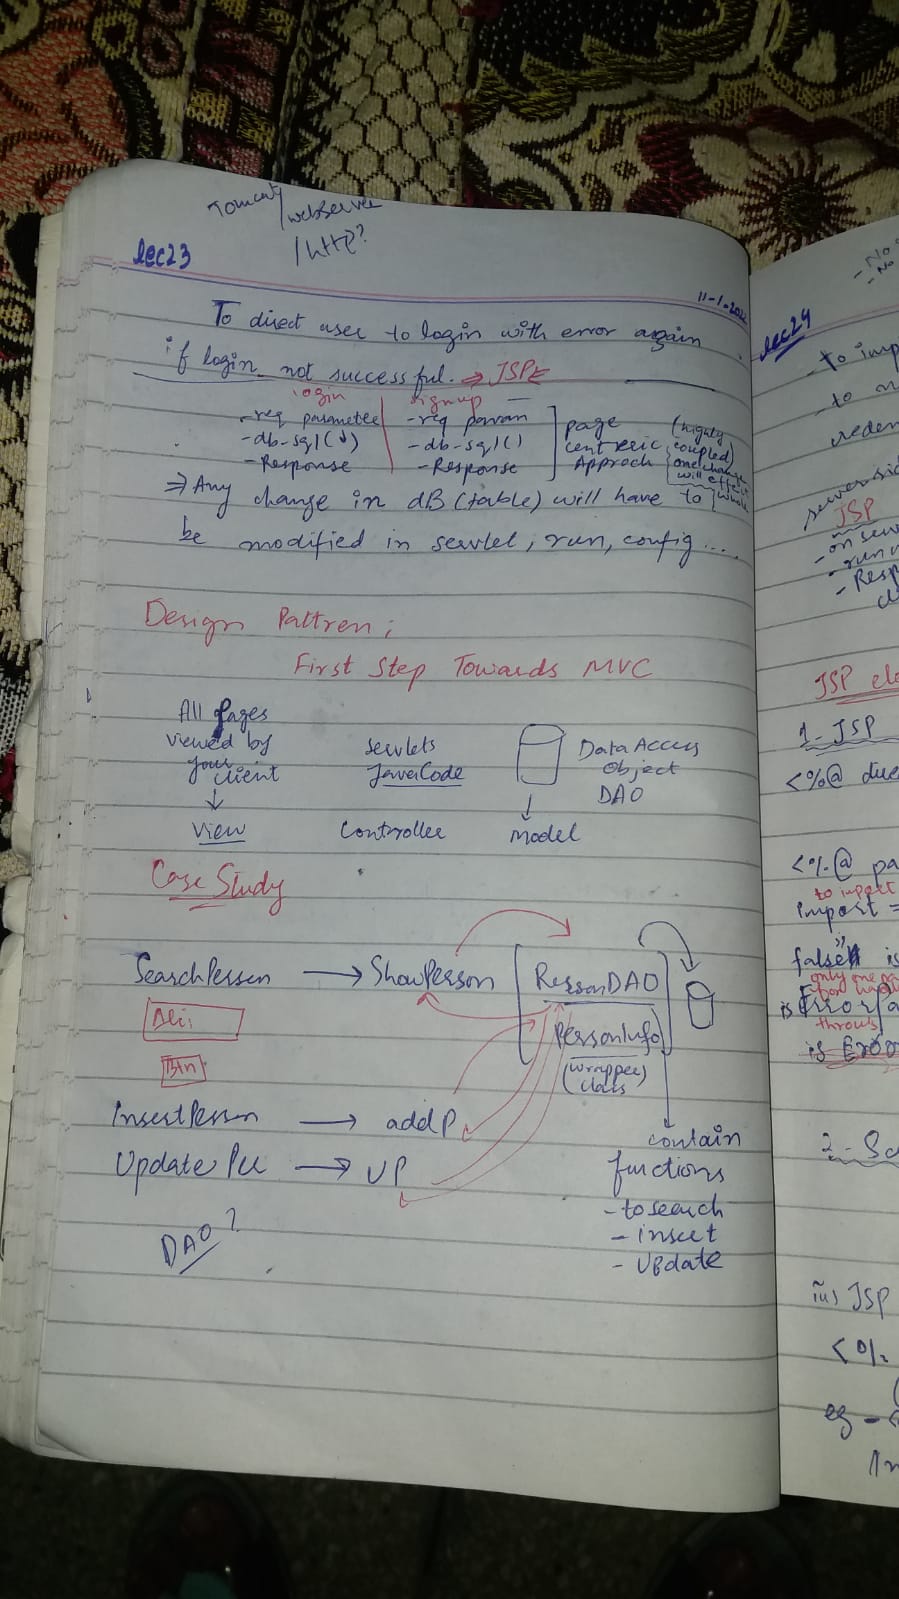 Tomcat/
webserver
/ http?
lec23
11-1-2022
To direct user to login with error again
if login not successful. ⇒ JSP
login
signup
- req parameter
- req param
- db-sql(↓)
- db-sql()
- Response
- Response
page
centeric
Approch
(highly
coupled)
one change
will effect
whole
⇒ Any change in dB (table) will have to
be modified in servlet, run, config ....
Design Pattren;
First Step Towards MVC
All Pages
viewed by
your
client
↓
View
servlets
JavaCode
Controller
Data Access
Object
DAO
↓
Model
Case Study
SearchPerson → ShowPerson
PersonDAO
Ali
PersonInfo
(wrapper)
class
Btn
InsertPerson → addP
Update Per → UP
contain
functions
- to search
- insert
- Update
DAO?
lec24
- No
- No
- to imp
- to
creden
JSP
- on serv
- run
- Resp
JSP ele
1- JSP
<%@ dire
<%@ pa
to import
import =
false" is
only one
is Error
throws
is Error
2- Sc
JSP
<%
eg -